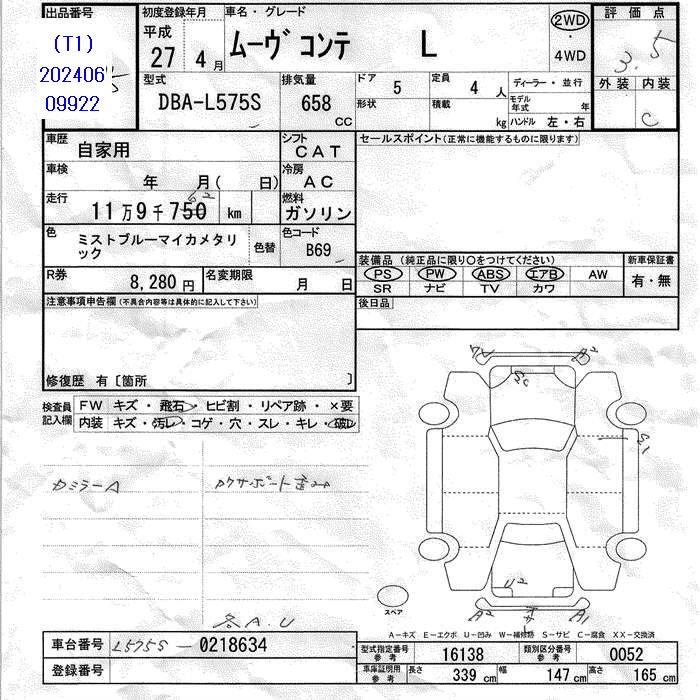 出品番号
(T1)
202406
09922
初度登録年月
平成
27 4月
車名・グレード
ムーヴ コンテ L
2WD
・
4WD
評価点
3.5
外装 内装
C
型式
DBA-L575S
排気量
658
CC
ドア
5
定員
4人
ディーラー・並行
形状
積載
kg
モデル年式 年
ハンドル 左・右
車歴
自家用
シフト
CAT
セールスポイント(正常に機能するものに限ります)
車検
年 月( 日)
冷房
AC
走行
11万9千750 km
燃料
ガソリン
色
ミストブルーマイカメタリ
ック
色替
色コード
B69
装備品 (純正品に限り○をつけてください)
新車保証書
PS PW ABS エアB AW
SR ナビ TV カワ
有・無
R券
8,280円
名変期限
月 日
後日品
注意事項申告欄(不具合内容等は具体的に記入して下さい)
修復歴 有〔箇所 〕
検査員
記入欄
FW キズ・飛石・ヒビ割・リペア跡・×要
内装 キズ・汚レ・コゲ・穴・スレ・キレ・破レ
カミラーA
各A.U
A2
U2
A2
A1
スペア
A-キズ E-エクボ U-凹み W-補修跡 S-サビ C-腐食 XX-交換済
車台番号
L575S-0218634
登録番号
型式指定番号
参考
16138
類別区分番号
参考
0052
車庫証明用
参考
長さ
339 cm
幅
147 cm
高さ
165 cm